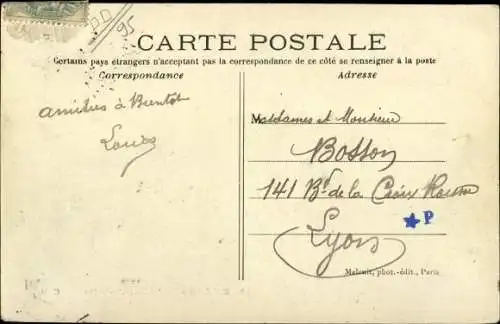 PD
95
CARTE POSTALE
Certains pays étrangers n'acceptant pas la correspondance de ce côté se renseigner à la poste
Correspondance
Adresse
amitiés à Bientot
Louis
Mesdames et Monsieur
Bosson
141 Bd. de la Croix Rousse
Lyon
P
Malcuit, phot.-édit., Paris